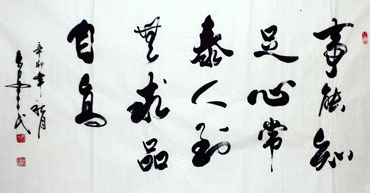 事能知
足心常
泰人到
无求品
自高
辛卯年秋月